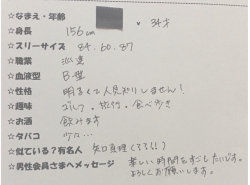 ☆なまえ・年齢 34才
☆身長 156cm
☆スリーサイズ 84.60.87
☆職業
☆血液型 B型
☆性格 明るくて人見知りしません!
☆趣味 ゴルフ、旅行、食べ歩き
☆お酒 飲みます
☆タバコ
☆似ている?有名人 矢口真理(???)
☆男性会員さまへメッセージ 楽しい時間をすごしたいです。
よろしくお願いします。